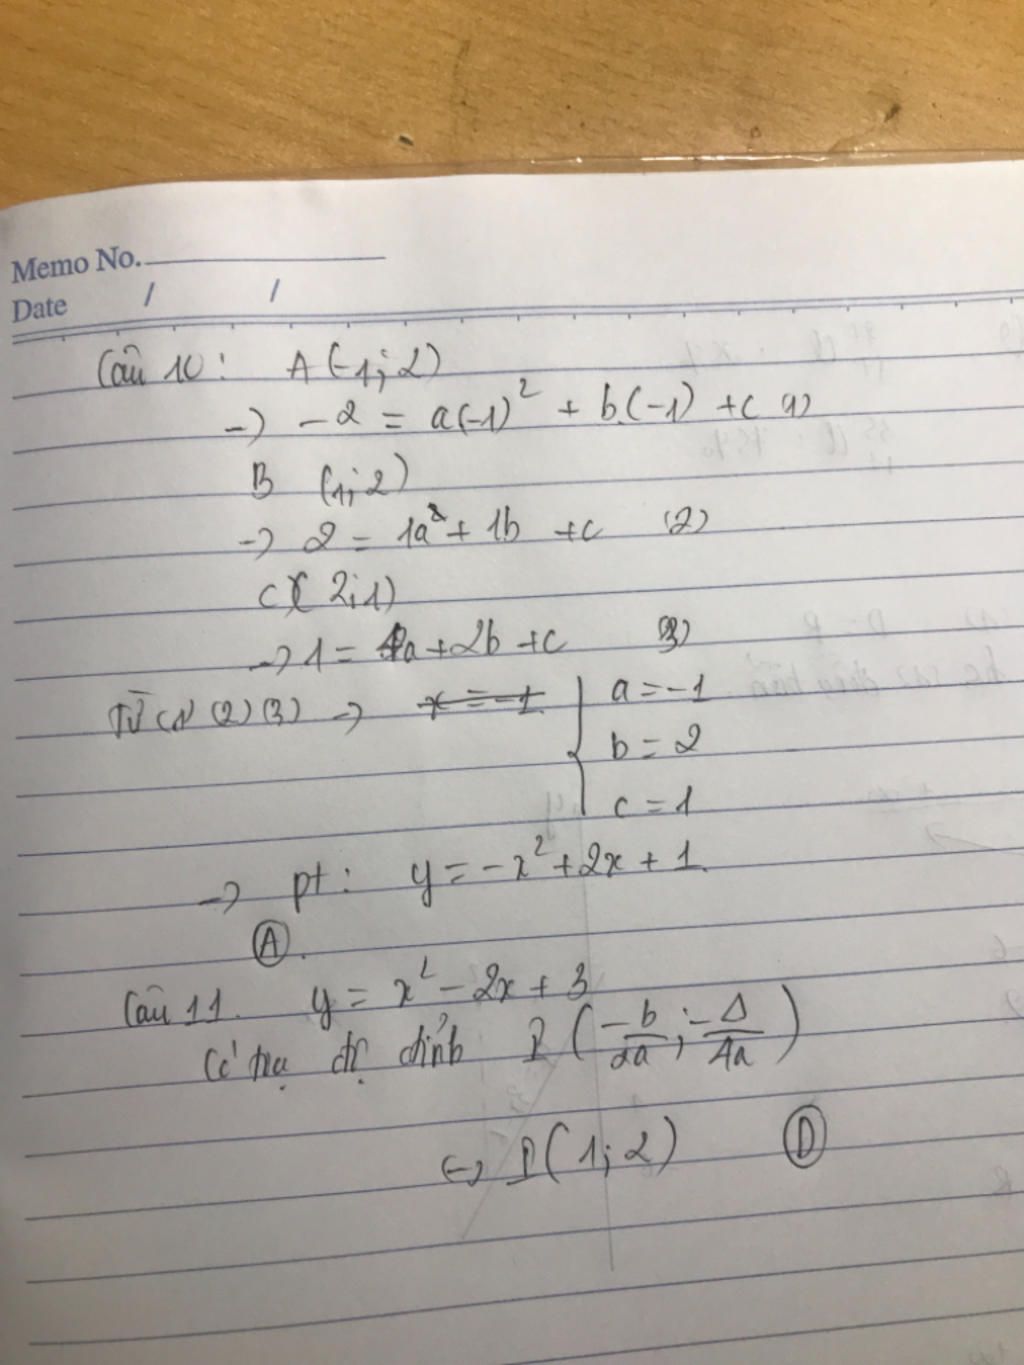 Memo No.
Date / /
Câu 10: A(-1; 2)
→ -2 = a(-1)² + b.(-1) + c (1)
B (1; 2)
→ 2 = 1a² + 1b + c (2)
C( 2; 1)
→ 1 = 4a + 2b + c (3)
Từ (1) (2) (3) → x = -1 { a = -1
b = 2
c = 1
→ pt: y = -x² + 2x + 1.
Ⓐ.
Câu 11. y = x² - 2x + 3
Có toạ độ đỉnh I ( -b/2a ; -Δ/4a )
↔ I( 1; 2) Ⓓ